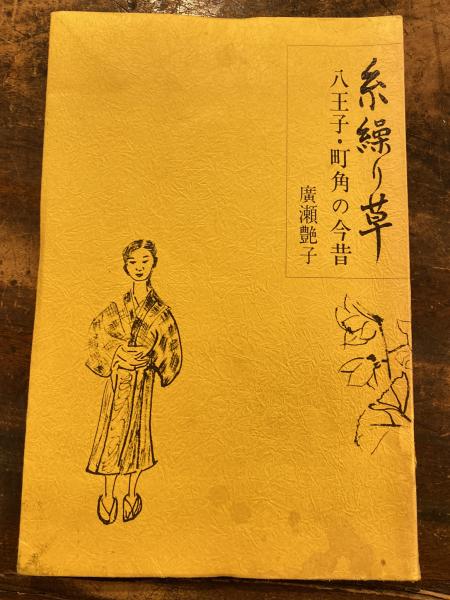 糸繰り草
八王子・町角の今昔
廣瀬艶子